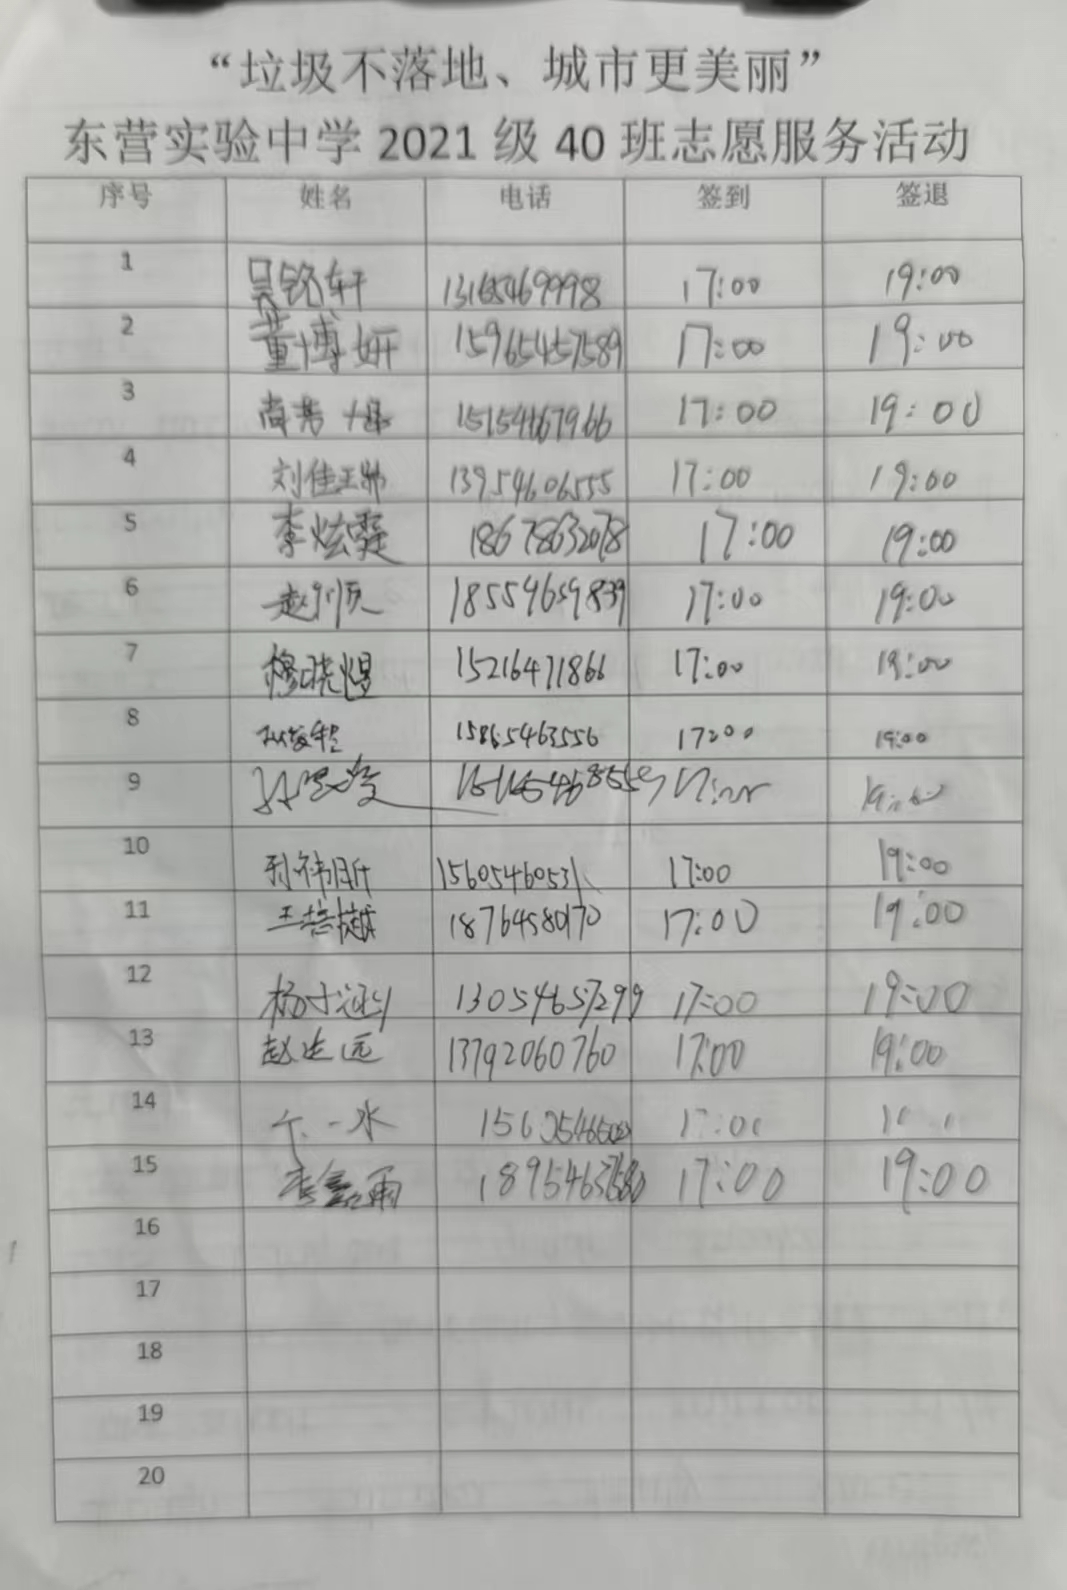 “垃圾不落地、城市更美丽”
东营实验中学 2021 级 40 班志愿服务活动
序号 姓名 电话 签到 签退
1 吴铭轩 13165469998 17:00 19:00
2 董博妍 15965457589 17:00 19:00
3 15154467966 17:00 19:00
4 刘佳 13954606555 17:00 19:00
5 李炫霆 18678632078 17:00 19:00
6 赵 18554659839 17:00 19:00
7 穆晓煜 15216471866 17:00 19:00
8 15865463556 17:00 19:00
9
10 15605460531 17:00 19:00
11 王培越 18764580170 17:00 19:00
12 杨 13054657299 17:00 19:00
13 赵志远 13792060760 17:00 19:00
14 一水 17:00
15 李鑫雨 17:00 19:00
16
17
18
19
20